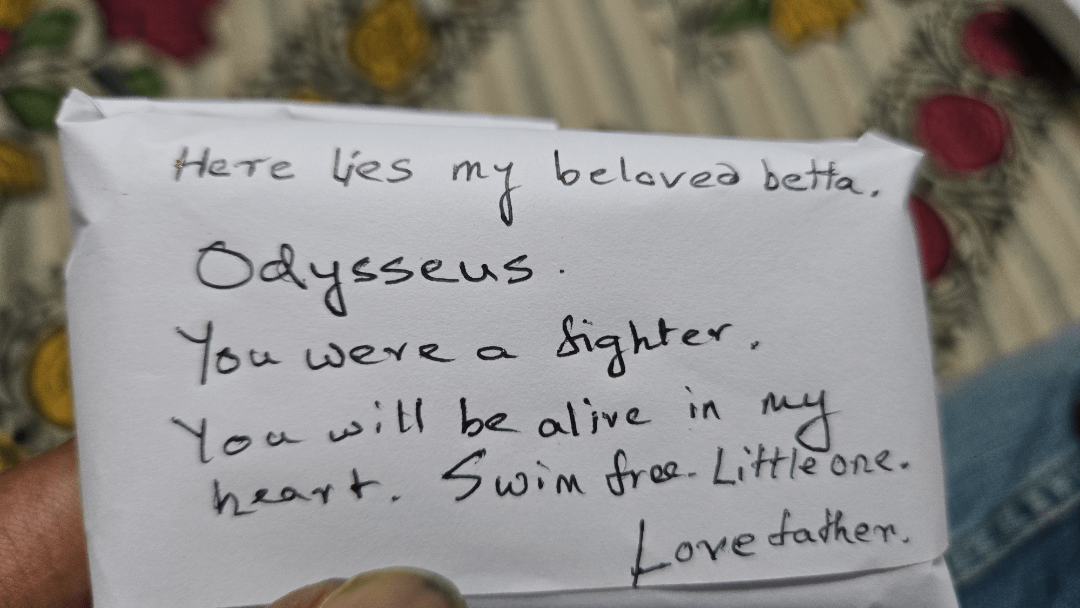 Here lies my beloved betta.
Odysseus.
You were a fighter.
You will be alive in my
heart. Swim free. Little one.
Love father.